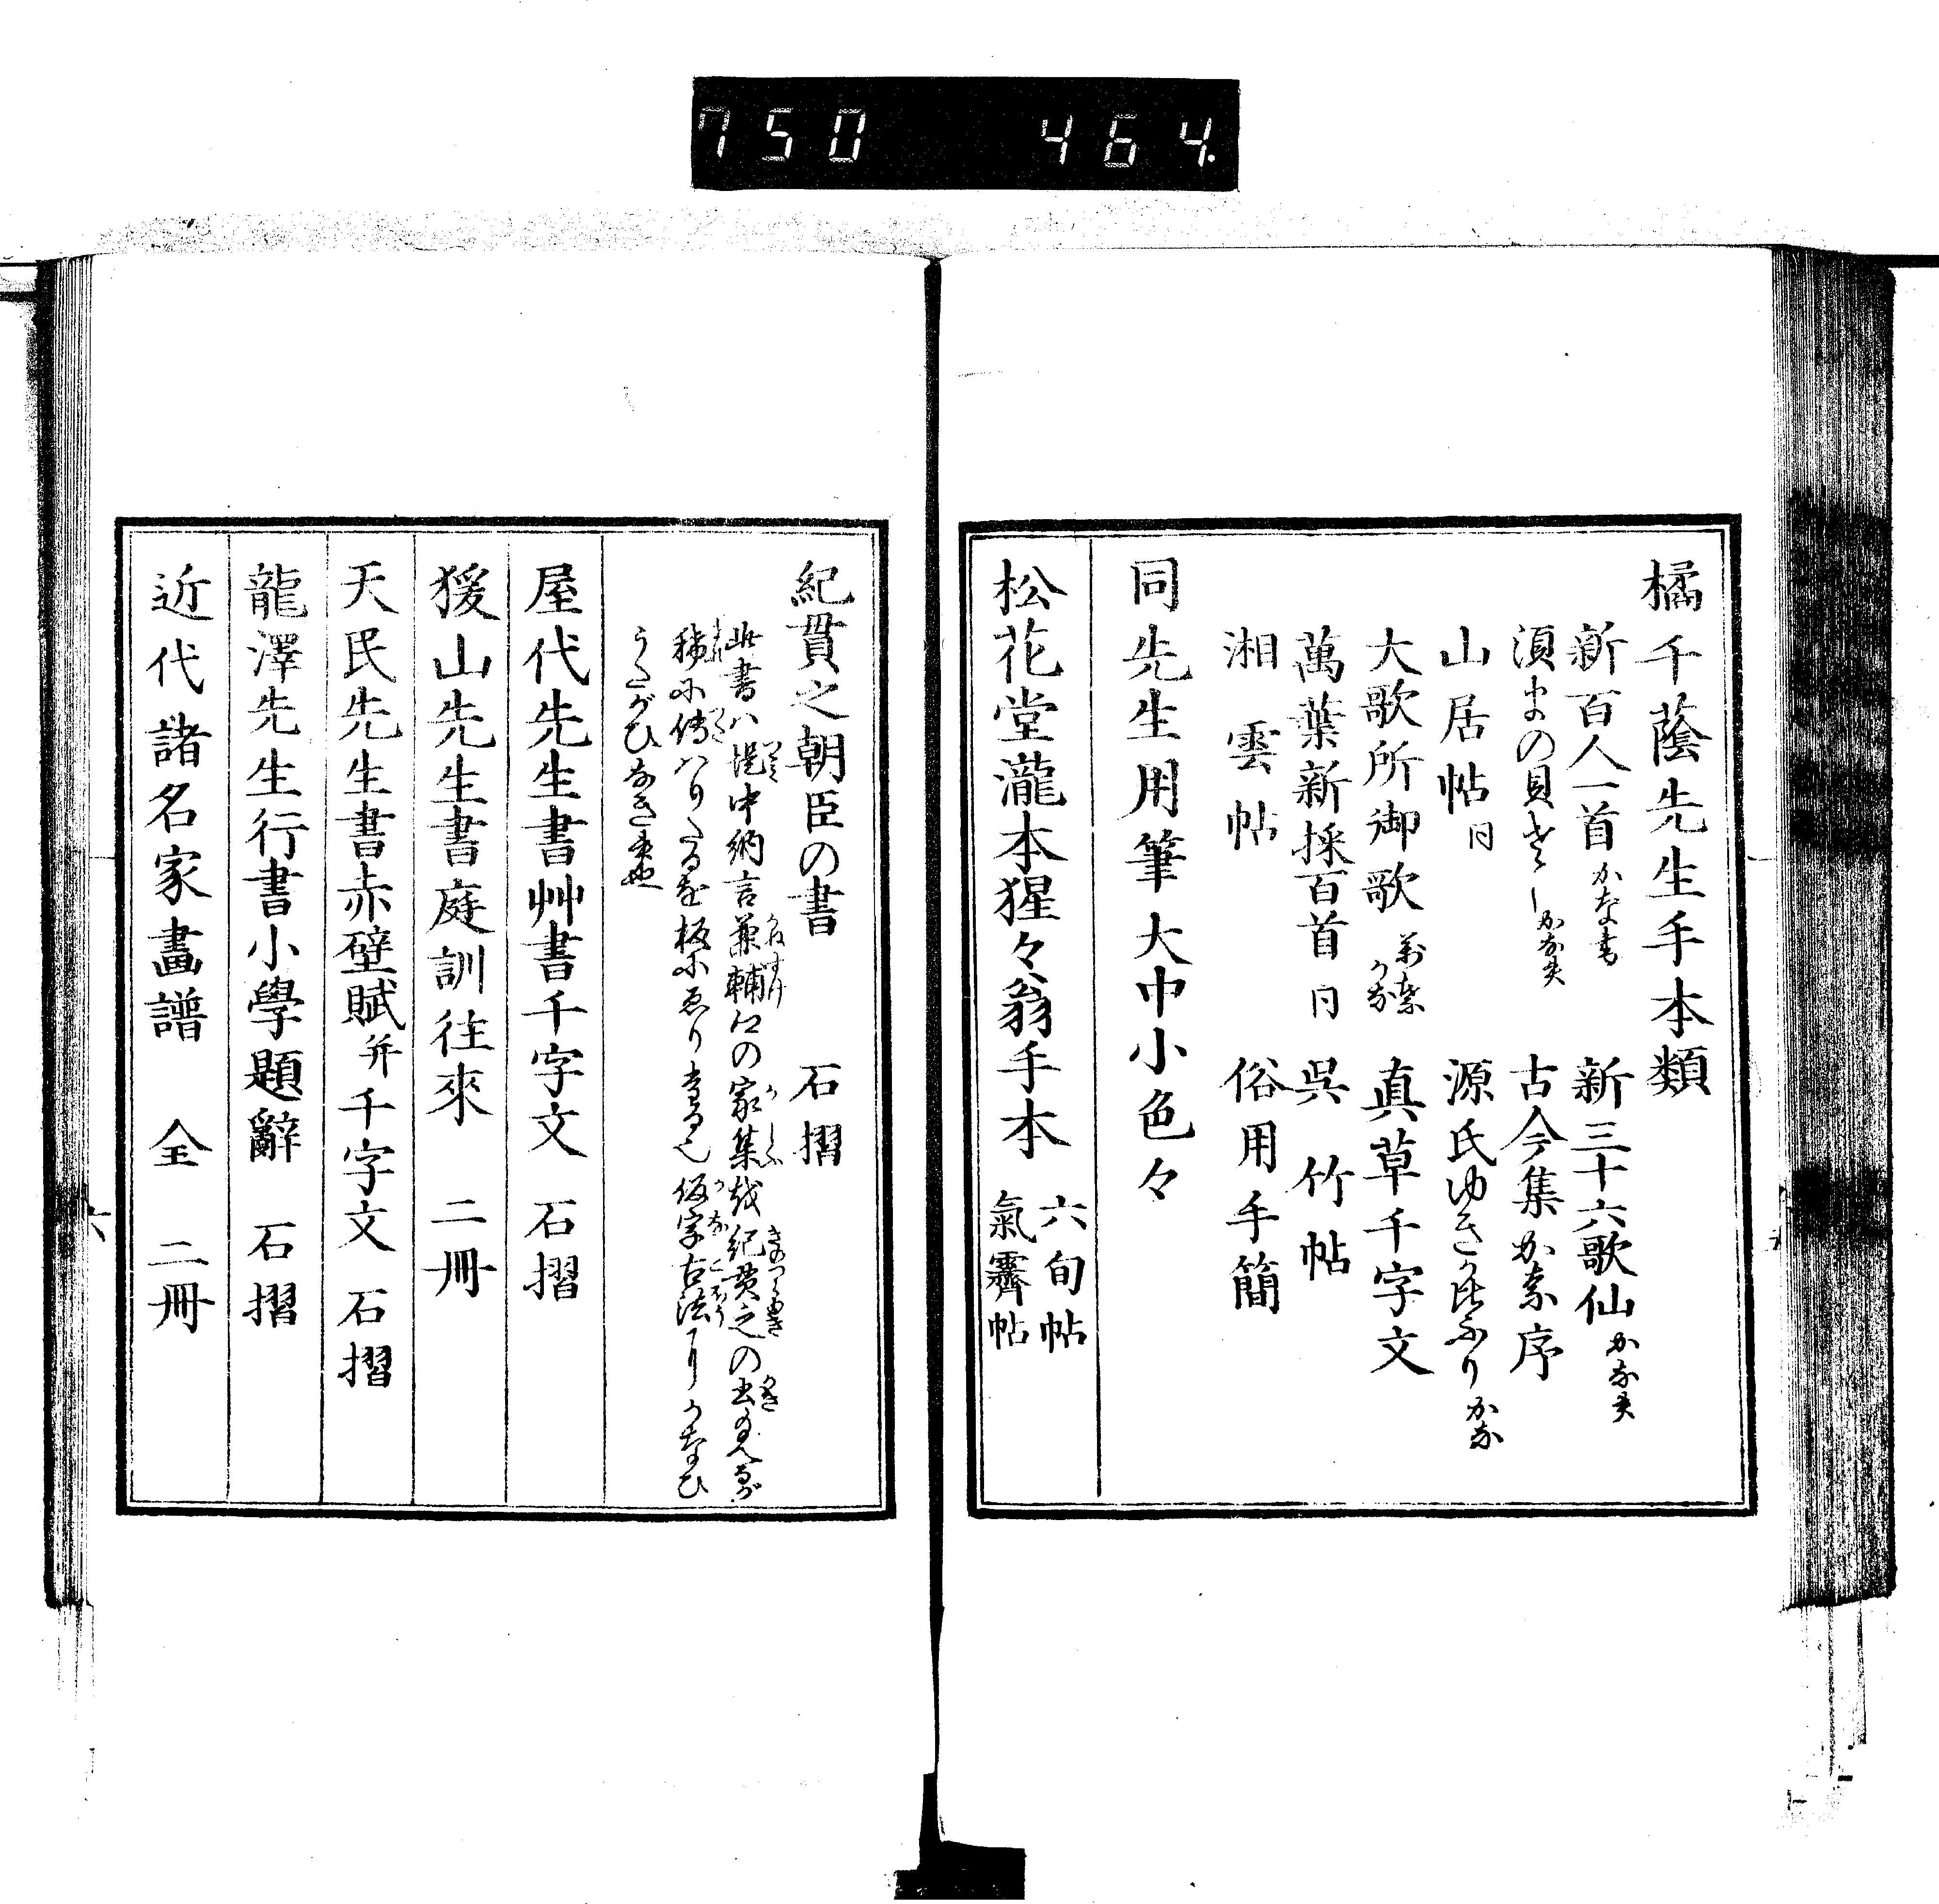 750 464.
橘千蔭先生手本類
新百人一首 かな書 新三十六歌仙 かな書
須まの貝 古今集かな序
山居帖 同 源氏ゆきかはふり かな
大歌所御歌 萬葉かな 真草千字文
萬葉新採百首 同 呉竹帖
湘雲帖 俗用手簡
同先生用筆 大中小色々
松花堂瀧本猩々翁手本 六旬帖 氣霽帖
紀貫之朝臣の書 石摺
此書ハ堤中納言兼輔の家集を紀貫之の
稀に傳ハりたるを板にゑり 仮字古法にかなひ
うたがひなき
屋代先生書艸書千字文 石摺
猨山先生書庭訓往來 二冊
天民先生書赤壁賦并千字文 石摺
龍澤先生行書小學題辭 石摺
近代諸名家畫譜 全二冊
六